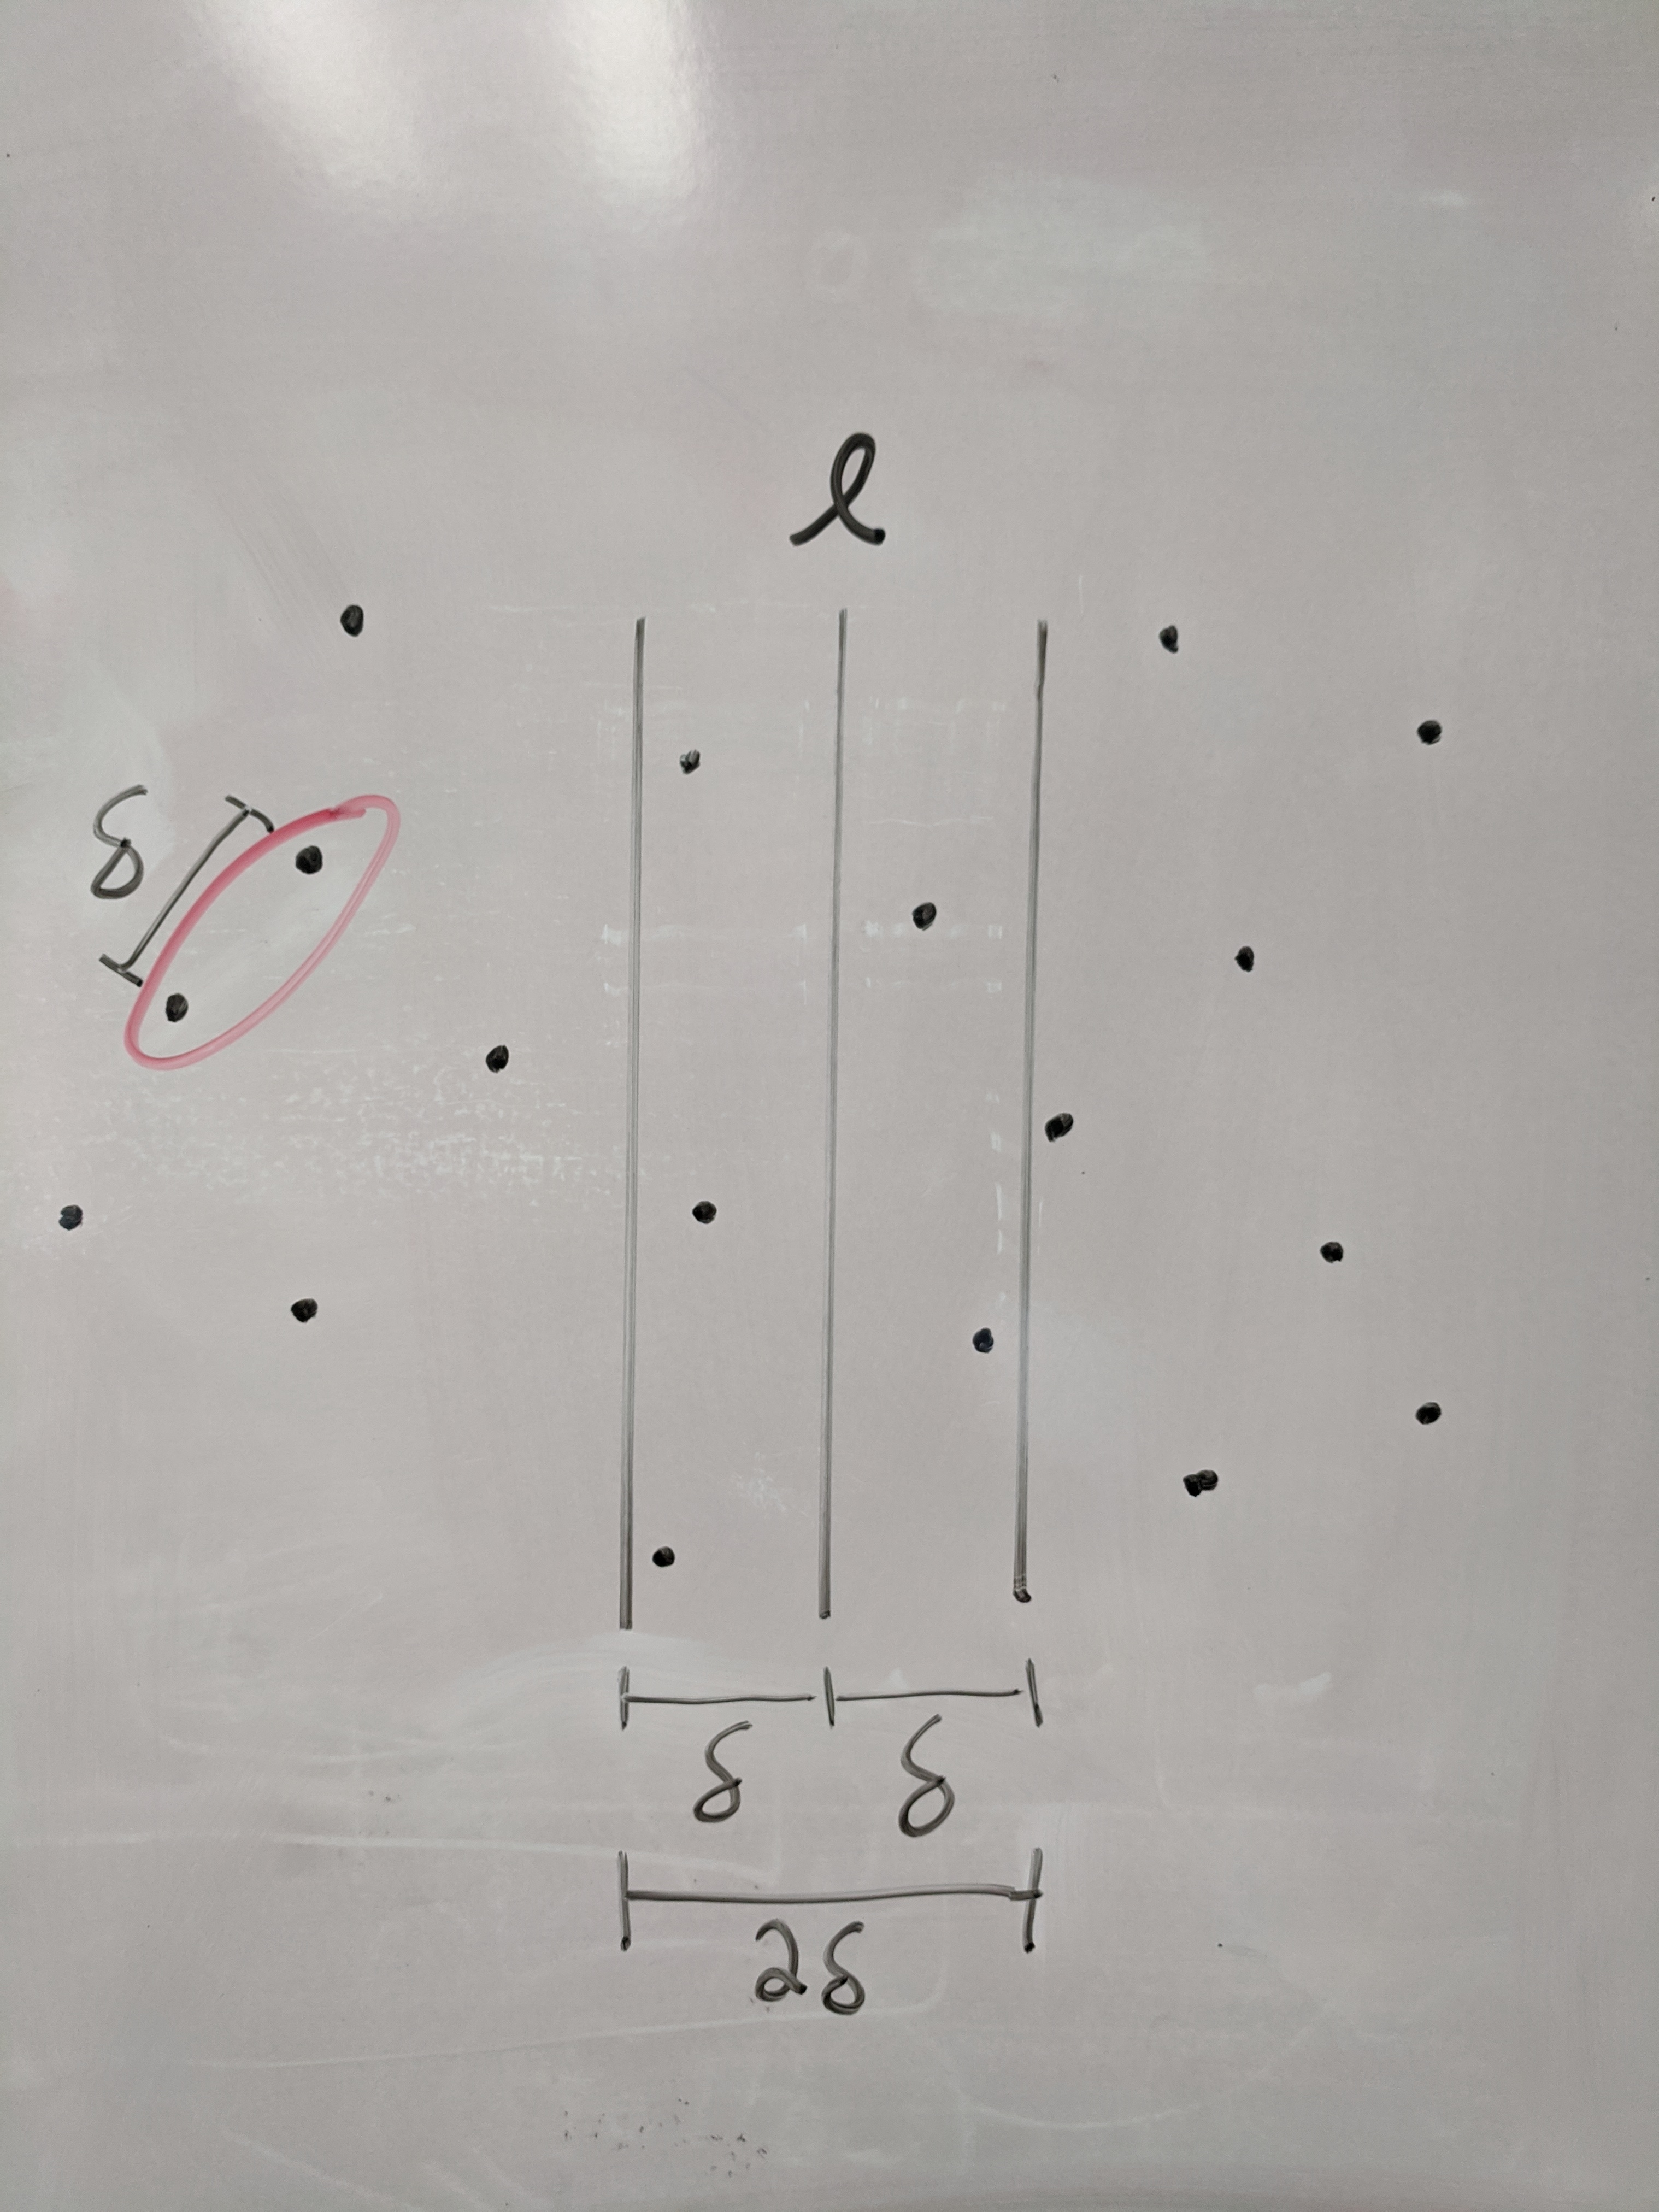 ℓ
δ
δ δ
2δ